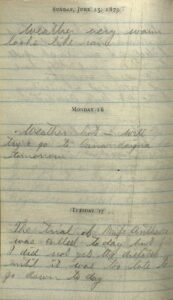 SUNDAY, JUNE 15, 1873
Weather very warm
looks like rain
MONDAY 16
Weather hot I will
try & go to Canandaigua
tomorrow
TUESDAY 17
The trial of Miss Anthony
was called to day but
I did not get the dispatch
until it was too late to
go down to day